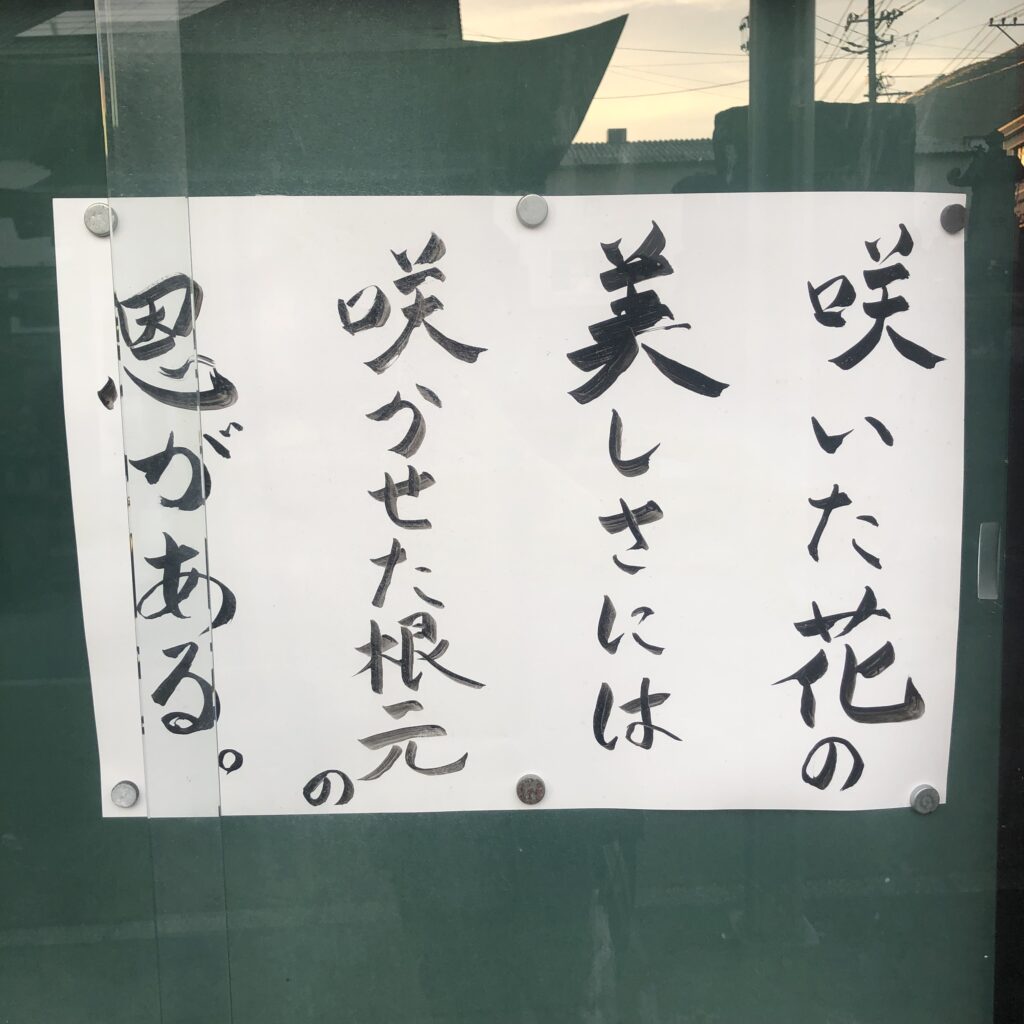 咲いた花の
美しさには
咲かせた根元の
恩がある。